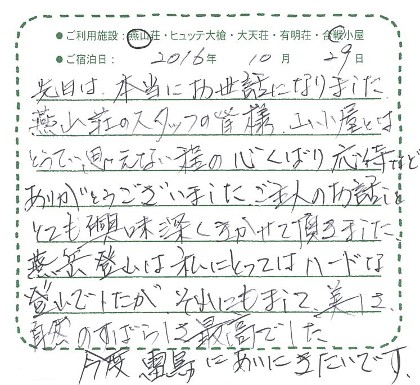 ●ご利用施設：燕山荘・ヒュッテ大槍・大天荘・有明荘・合戦小屋
●ご宿泊日： 2016年 10月 29日
先日は、本当にお世話になりました
燕山荘のスタッフの皆様、山小屋とは
とうてい思えない程の心くばり 応待など
ありがとうございました ご主人のお話しを
とても興味深くきかせて頂きました
燕岳登山は私にとってはハードな
登山でしたが それにもまして、美しさ、
自然のすばらしさ最高でした
今度 雷鳥にあいにきたいです、